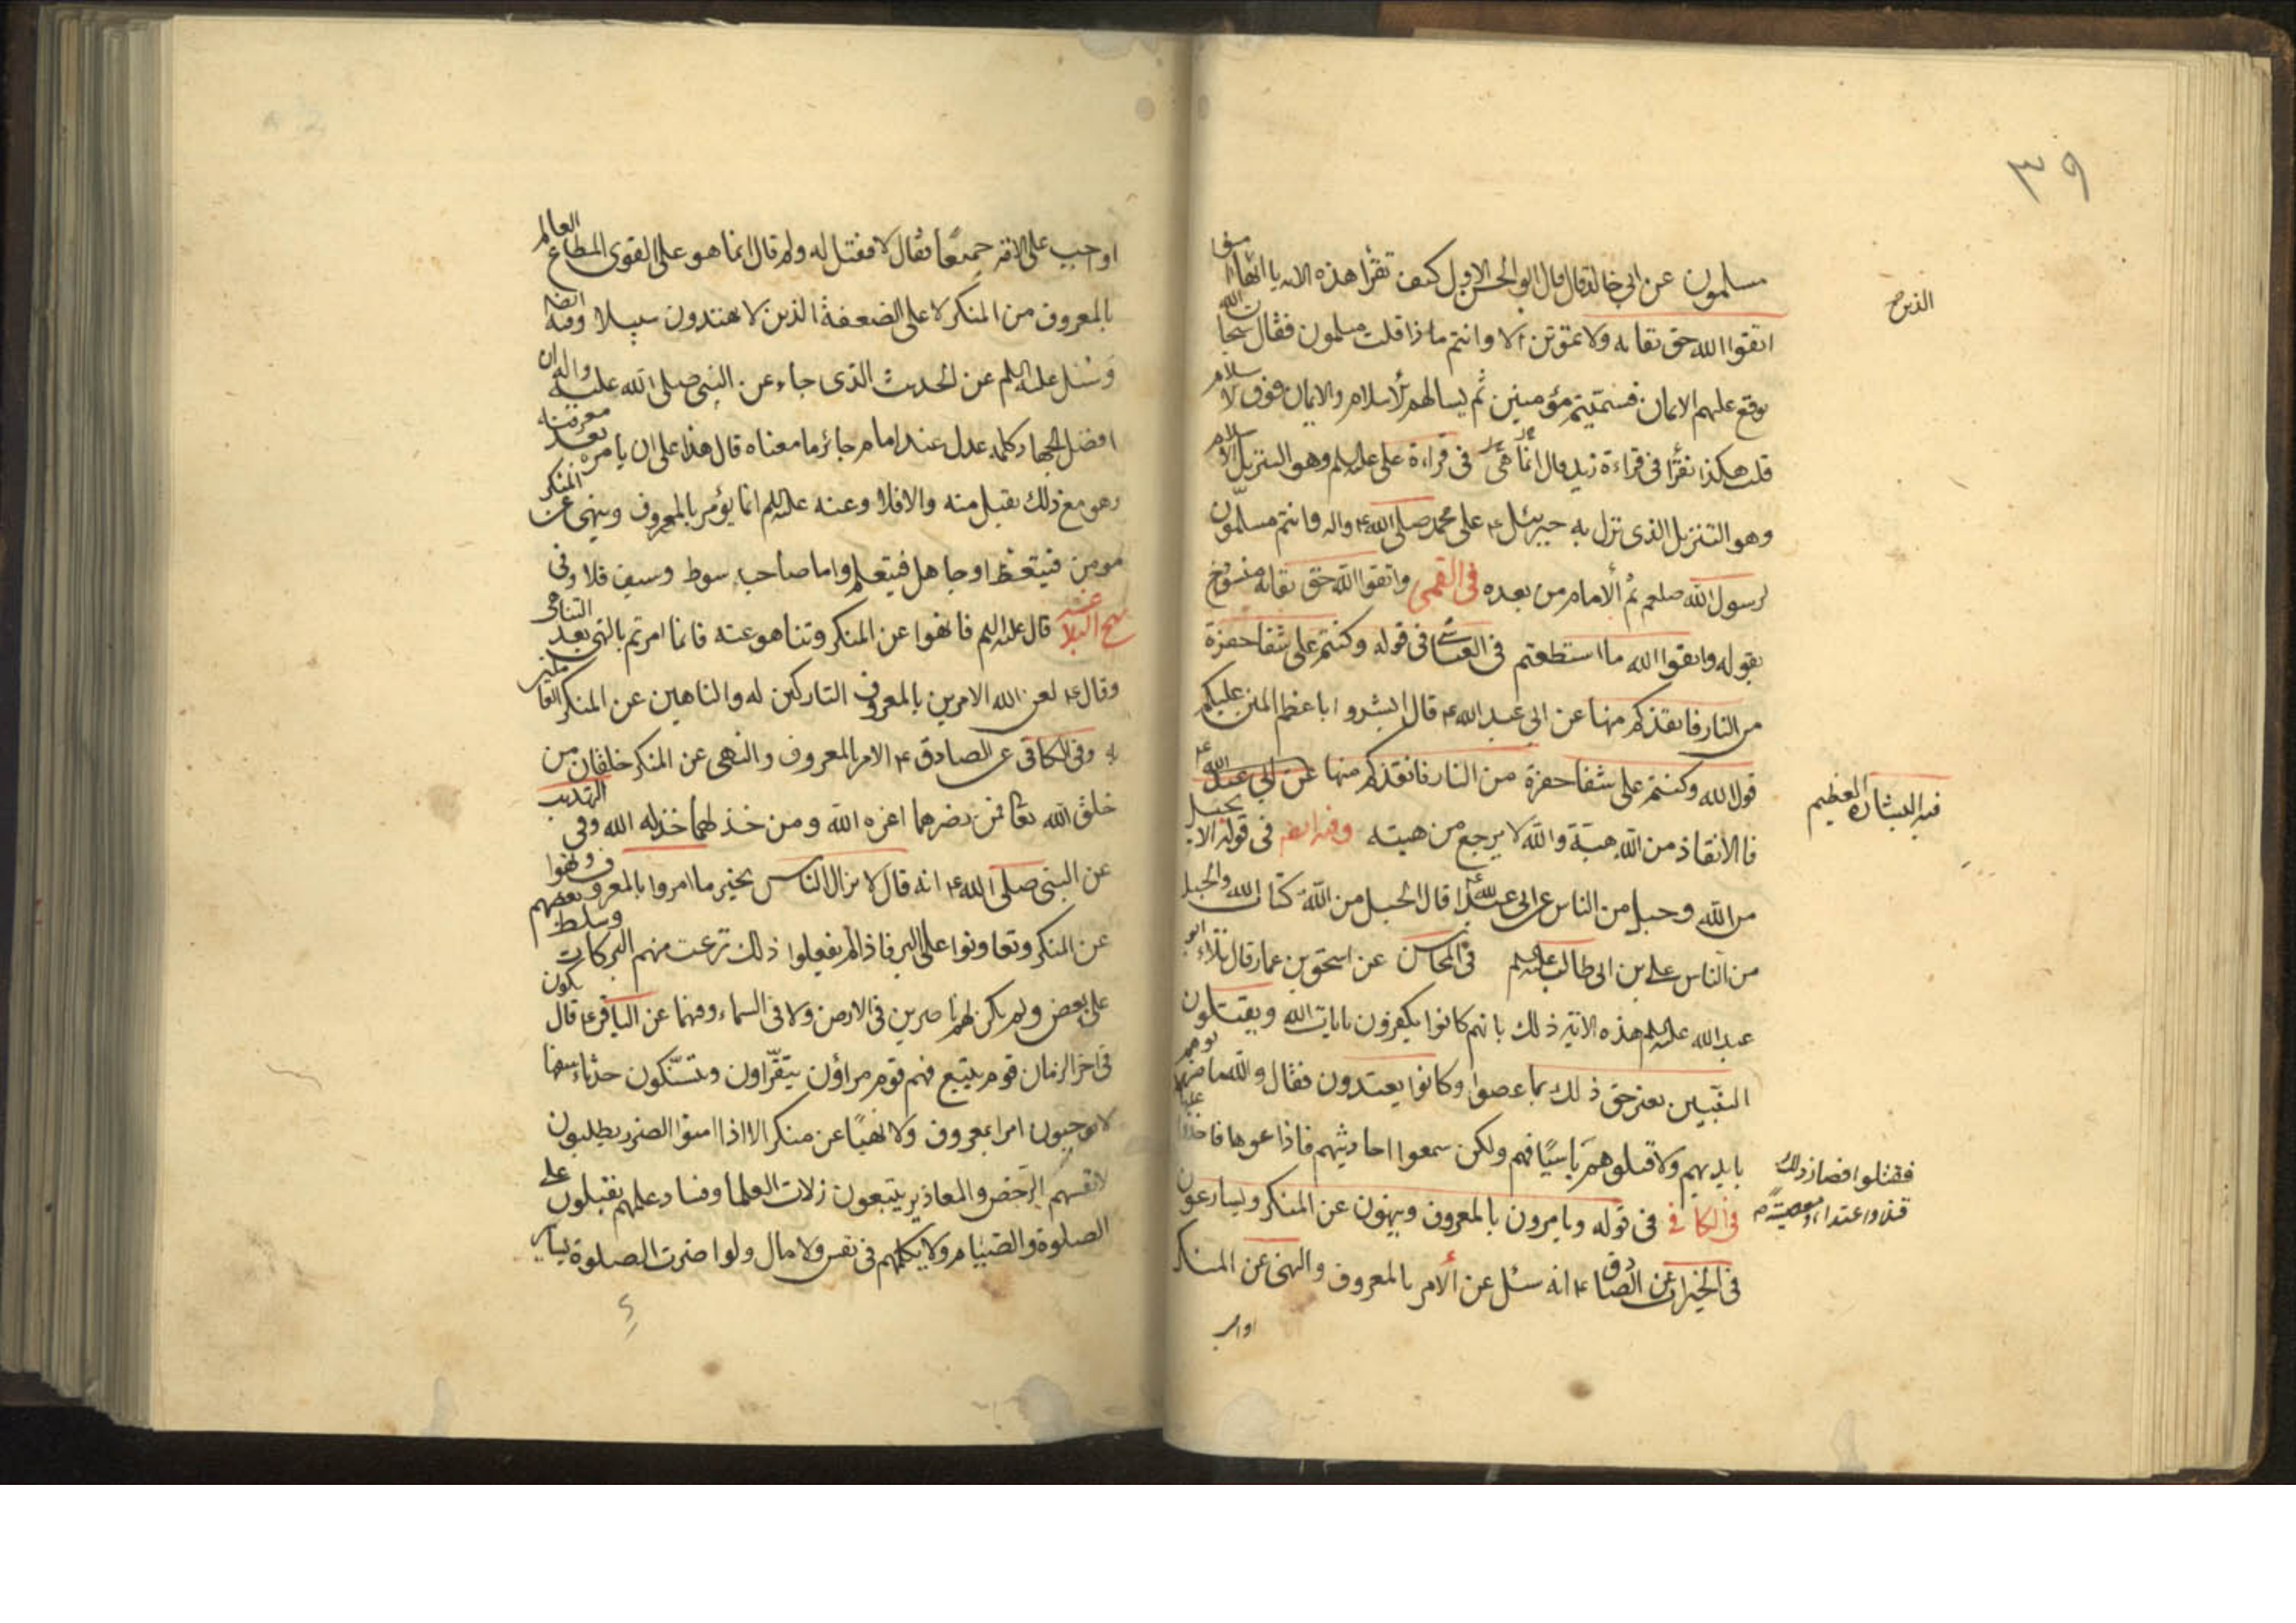 ٣٩
مسلمون عن ابي خالد قال قال ابو الحسن الاول كيف تقرأ هذه الايه يا ايها
الذين
اتقوا الله حق تقاته ولا تموتن الا وانتم ماذا قلت مسلمون فقال سبحان الله
يوقع عليهم الايمان فسميتم مؤمنين ثم يسالهم الاسلام والايمان فوق الاسلام
قلت هكذا تقرأ في قراءة زيد قال انما هي في قراءة علي عليه السلم وهو التنزيل
وهو التنزيل الذي نزل به جبرئيل ع على محمد صلى الله ع واله وانتم مسلمون
لرسول الله صلعم ثم الامام من بعده في القمي واتقوا الله حق تقاته منسوخ
بقوله واتقوا الله ما استطعتم في العياشي في قوله وكنتم على شفا حفرة
من النار فانقذكم منها عن ابي عبد الله ع قال ابشروا باعظم المنن عليكم
قول الله وكنتم على شفا حفرة من النار فانقذكم منها عن ابي عبد الله ع
فيه البشارة العظيم
فالانقاذ من الله هبة والله لا يرجع من هبته وفيه ايضا في قوله الا بحبل
من الله وحبل من الناس عن ابي عبد الله ع قال الحبل من الله كتاب الله والحبل
من الناس علي بن ابي طالب عليه السلم في المحاسن عن اسحق بن عمار قال تلا ابو
عبد الله عليه السلم هذه الاية ذلك بانهم كانوا يكفرون بايات الله ويقتلون
النبيين بغير حق ذلك بما عصوا وكانوا يعتدون فقال والله ما ضربوهم
بايديهم ولا قتلوهم باسيافهم ولكن سمعوا احاديثهم فاذاعوها فاخذوا عليها
فقتلوا فصار ذلك
قتلا واعتداء ومعصية
في الكافي في قوله ويامرون بالمعروف وينهون عن المنكر ويسارعون
في الخيرات عن الصادق ع انه سئل عن الامر بالمعروف والنهي عن المنكر
اوجب على الامة جميعا فقال لا فقيل له ولم قال انما هو على القوي المطاع العالم
بالمعروف من المنكر لا على الضعفة الذين لا يهتدون سبيلا وفيه ايضا
وسئل عليه السلم عن الحديث الذي جاء عن النبي صلى الله عليه واله ان
افضل الجهاد كلمة عدل عند امام جائر ما معناه قال هذا على ان يامره بعد معرفته
وهو مع ذلك يقبل منه والا فلا وعنه عليه السلم انما يؤمر بالمعروف وينهى عن المنكر
مومن فيتعظ او جاهل فيتعلم واما صاحب سوط وسيف فلا وفي
نهج البلاغه قال عليه السلم فانهوا عن المنكر وتناهوا عنه فانما امرتم بالنهي بعد التناهي
وقال ع لعن الله الامرين بالمعروف التاركين له والناهين عن المنكر العاملين
به وفي الكافي عن الصادق ع الامر بالمعروف والنهي عن المنكر خلقان من
خلق الله تعا فمن نصرهما اعزه الله ومن خذلهما خذله الله وفي التهذيب
عن النبي صلى الله ع انه قال لا يزال الناس بخير ما امروا بالمعروف ونهوا
عن المنكر وتعاونوا على البر فاذا لم يفعلوا ذلك نزعت منهم البركات وسلط بعضهم
على بعض ولم يكن لهم ناصرين في الارض ولا في السماء وفيهما عن الباقر ع قال يكون
في اخر الزمان قوم يتبع فيهم قوم مراؤن يتقرأون ويتنسكون حدثاء سفهاء
لا يوجبون امرا بمعروف ولا نهيا عن منكر الا اذا امنوا الضرر يطلبون
لانفسهم الرخص والمعاذير يتبعون زلات العلما وفساد علمهم يقبلون على
الصلوة والصيام ولا يكلمهم في نفس ولا مال ولو اضرت الصلوة بسائر